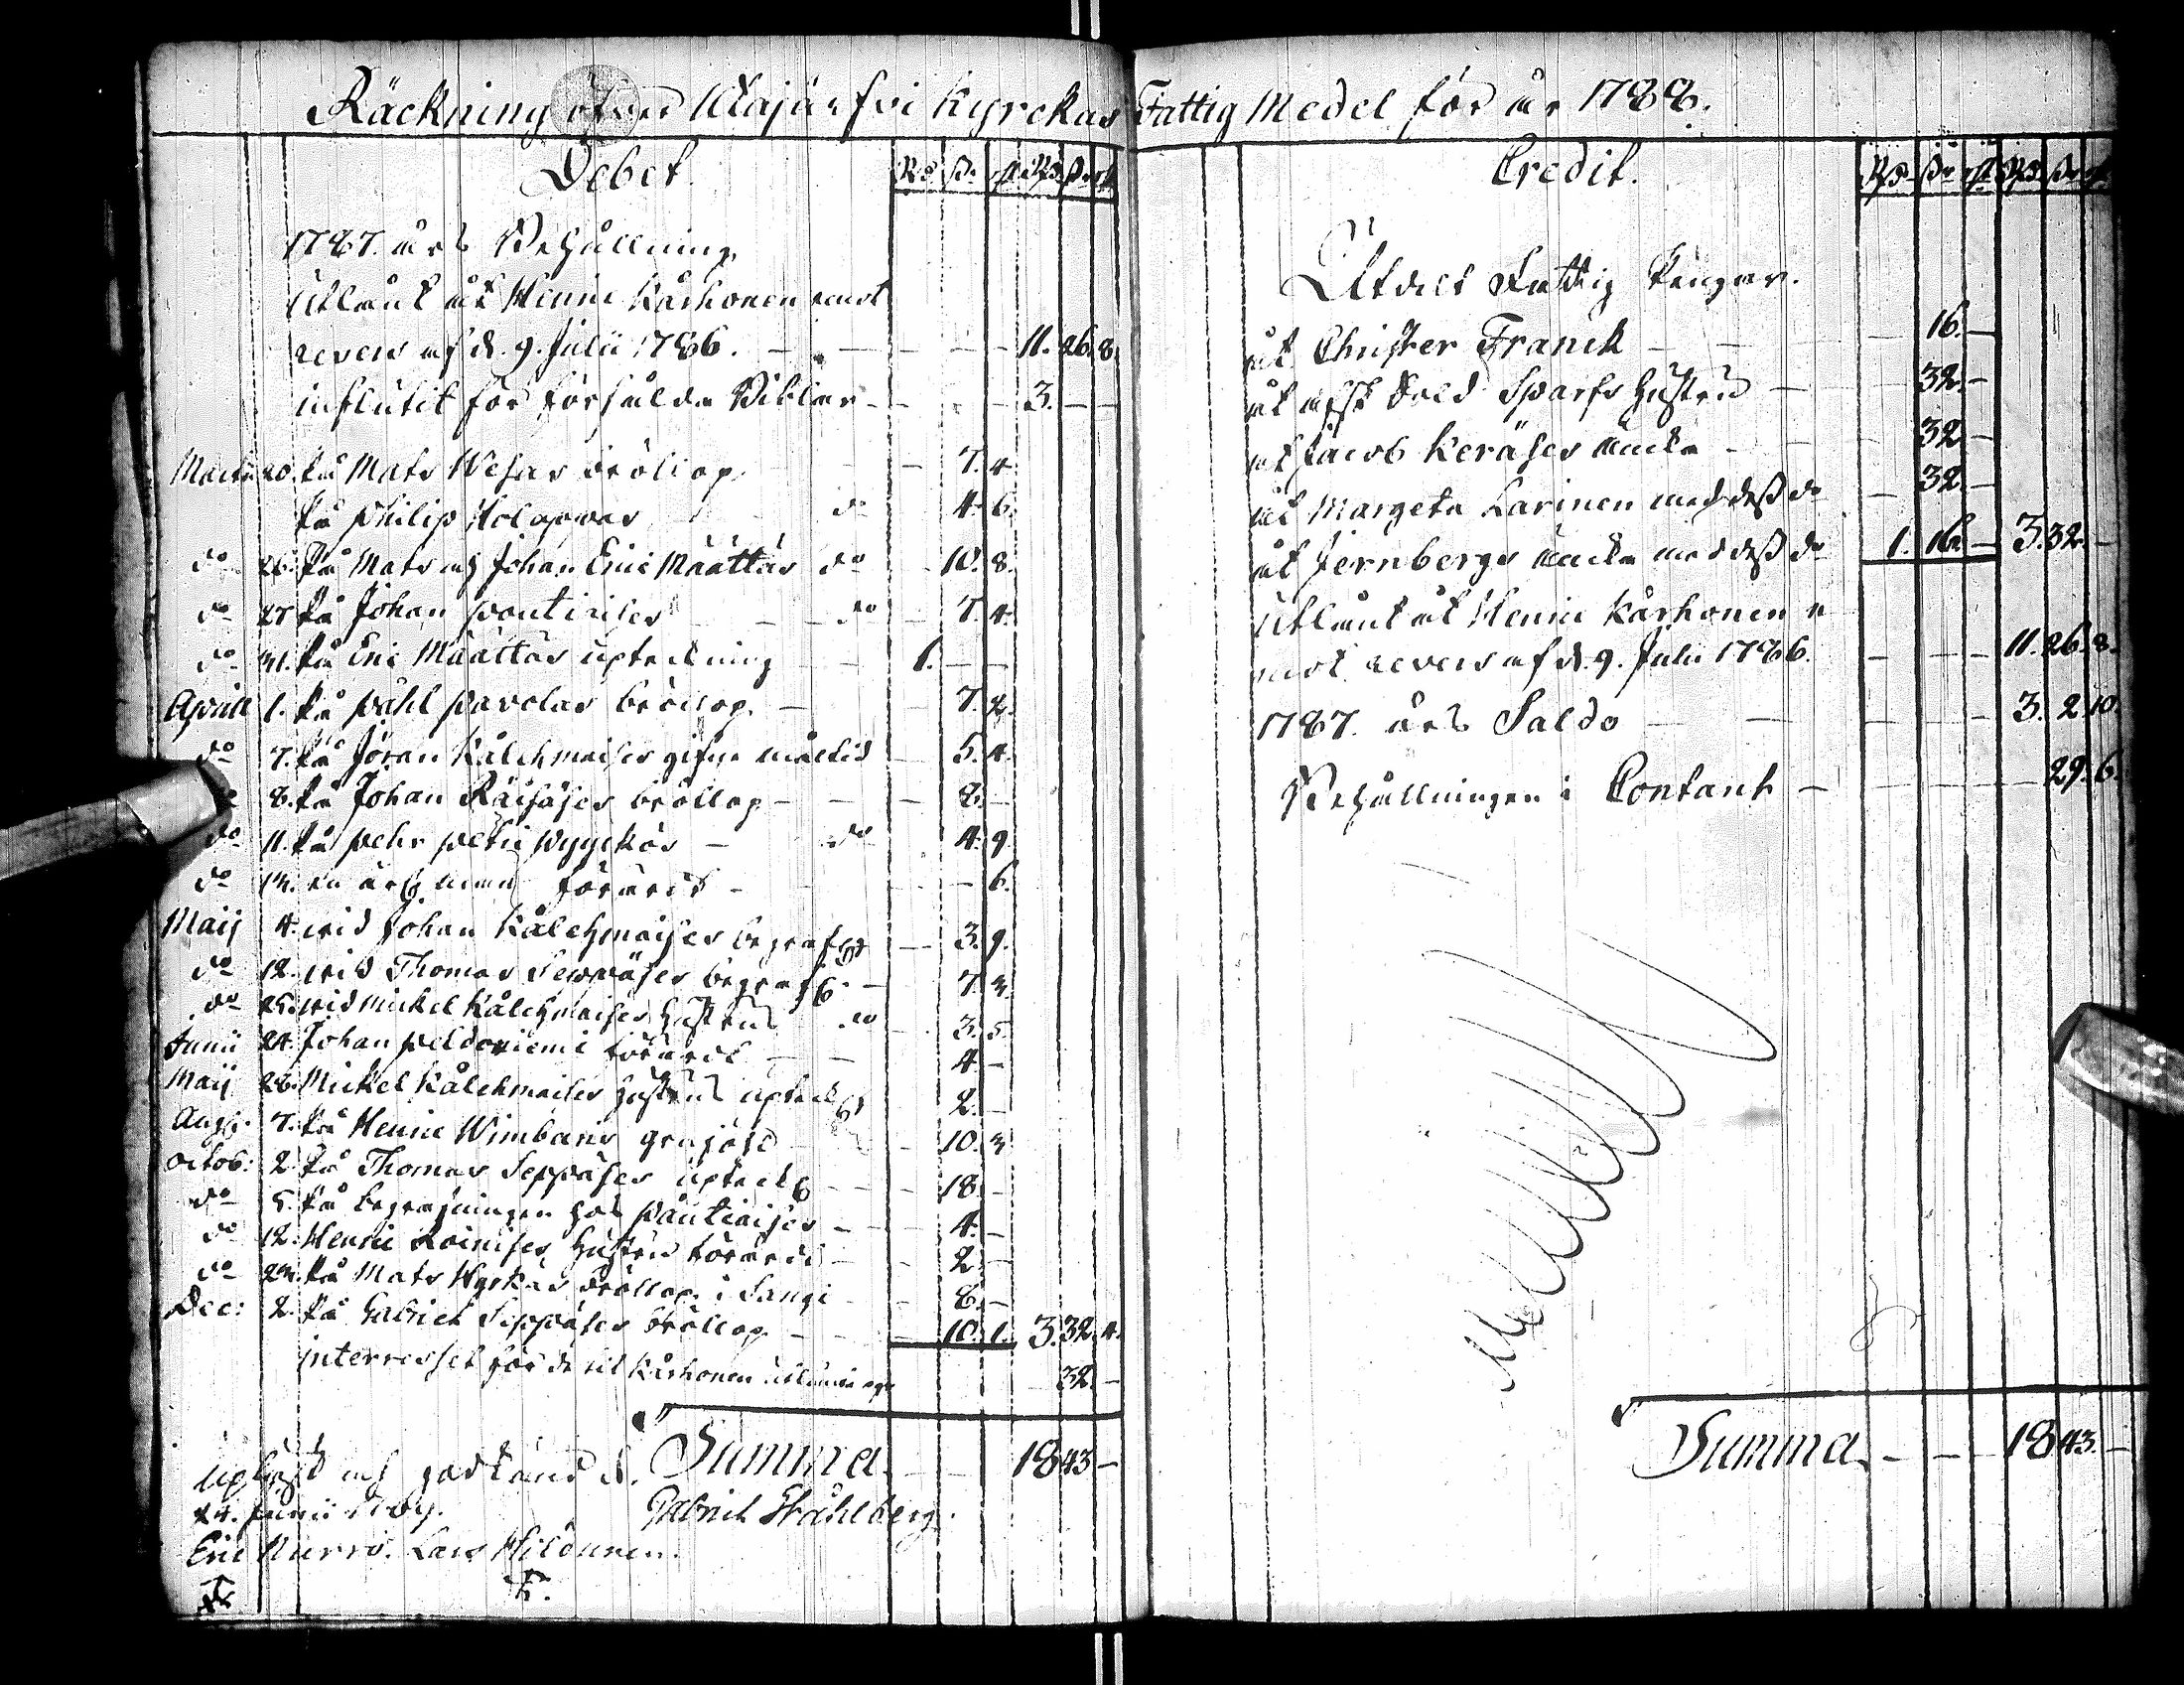 Räckning öfver Utajärfvi Kyrckas Fattig Medel för år 1788.
Debet. Rd. sk. rst. Rd. sk. rst.
1787. års Behållning.
Utlånt åt Henric Karhonen emot
revers af d. 9. Julii 1786. — — — — 11. 26. 8.
influtit för försålda Biblar — — — 3. — —
Martii 20. På Mats Wesas bröllop — 7. 4.
På Philip Holappas do 4. 6.
do 26. På Mats och Johan Eric Määttäs do 10. 8.
do 27 På Johan Pautiaises — — do — 7. 4.
do 31. På Eric Määttäs upteckning — 1. — —
Aprill 1. På Påhl Pavolas bröllop. — 7. 2.
do 7. På Jöran Kälckmaises gifne måltid 5. 4.
8. På Johan Räisäses bröllop — — — 8. —
do 11. På Pehr Petri Pyyckös — do 4. 9.
do 13. en ärlig man förärdt — — 6.
Maij 4. vid Johan Kälckmaises begrafng — 3. 9.
do 12. vid Thomas Seppäses begrafg. — 7. 3.
do 25. vid Mickel Kälckmaises Hustrus do 3. 5.
Junii 24. Johan Peldoniemi förärdt — — 4 —
Maij 28. Mickel Kälckmaises Hustrus uptecg 2. —
Augg. 7. På Henric Wimbaris 10. 3
Octob: 2. På Thomas Seppäses uptecg — — 18 —
do 5. På begrafningen hos Pautiaises — — 4. —
do 12. Henric Roinises Hustru förärdt — — 2. —
do 23. På Mats Hyrkäs bröllop i Sangi — 8. —
Dec: 2. På Gabriel Seppäses bröllop — — — 10. 1. 3. 32. 4.
interresset för de til Karhonen utlånte 32. —
Summa — — 18 43 —
uplyst och godkänd d.
24. Junii 1789. Gabriel Ståhlberg.
Eric Kurro. Lars Hildunen.
Credit. Rd. sk. rst. Rd. sk. rst.
Utdelt Fattig Pengar.
åt Christer Franck — — 16. —
åt afsk Sold Sparfs Hustru — 32. —
åt Jacob Keräses Encka — — 32 —
åt Margeta Karinen med dess do — 32. —
åt Jernbergs Encka med dess do 1. 16. — 3. 32. —
Utlånt åt Henric Karhonen
emot revers af d. 9. Julii 1786. — — — 11. 26. 8.
1787. års Saldo — — — 3. 2. 10.
Behållningen i Contant — — 29. 6.
Summa. — — — 18 43. —